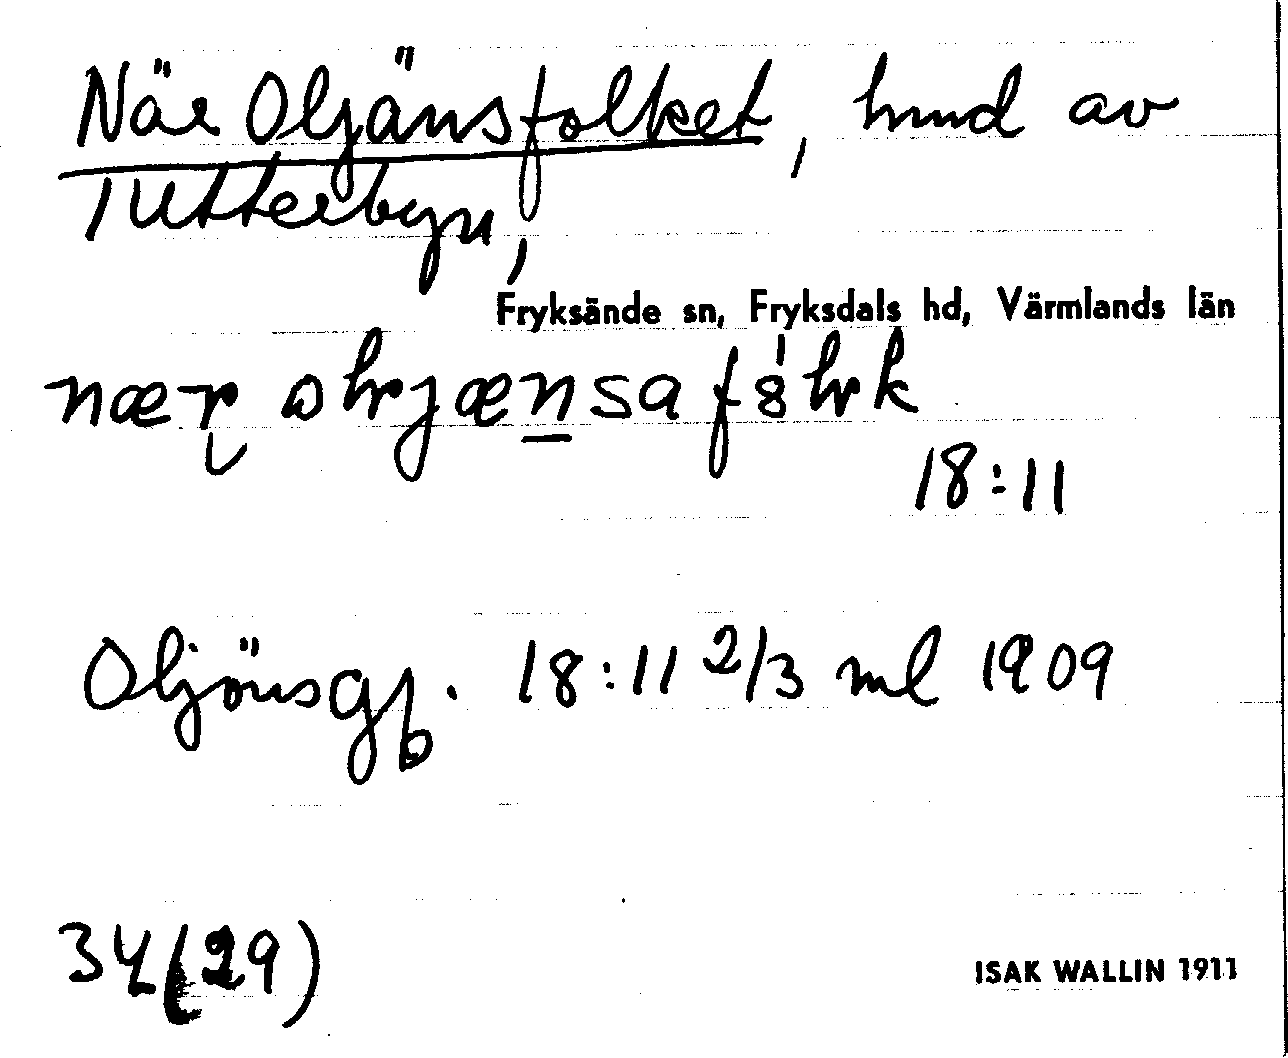 När Oljänsfolket, hmd av
Tutterbyn,
Fryksände sn, Fryksdals hd, Värmlands län
18:11
Oljönsgb. 18:11 2/3 ml 1909
34(29)
ISAK WALLIN 1911